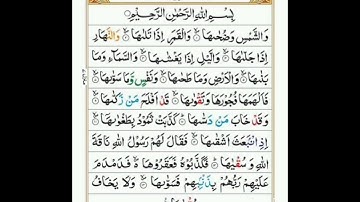 بِسْمِ اللهِ الرَّحْمٰنِ الرَّحِيْمِ
وَالشَّمْسِ وَضُحٰىهَا ۙ وَالْقَمَرِ اِذَا تَلٰىهَا ۙ وَالنَّهَارِ
اِذَا جَلّٰىهَا ۙ وَالَّيْلِ اِذَا يَغْشٰىهَا ۙ وَالسَّمَآءِ وَمَا
بَنٰىهَا ۙ وَالْاَرْضِ وَمَا طَحٰىهَا ۙ وَنَفْسٍ وَّمَا سَوّٰىهَا ۙ
فَاَلْهَمَهَا فُجُوْرَهَا وَتَقْوٰىهَا ۙ قَدْ اَفْلَحَ مَنْ زَكّٰىهَا ۙ
وَقَدْ خَابَ مَنْ دَسّٰىهَا ۙ كَذَّبَتْ ثَمُوْدُ بِطَغْوٰىهَا ۙ
اِذِ انْۢبَعَثَ اَشْقٰىهَا ۙ فَقَالَ لَهُمْ رَسُوْلُ اللهِ نَاقَةَ
اللهِ وَسُقْيٰهَا ۙ فَكَذَّبُوْهُ فَعَقَرُوْهَا ۙ فَدَمْدَمَ
عَلَيْهِمْ رَبُّهُمْ بِذَنْۢبِهِمْ فَسَوّٰىهَا ۙ وَلَا يَخَافُ